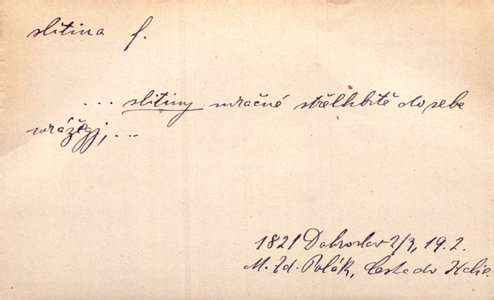 slitina f.
... slitiny mračné střelhbitě do sebe
wrážegj, ...
1821 Dobroslav 2/3, 19.2.
M. Zd. Polák, Cesta do Italie.